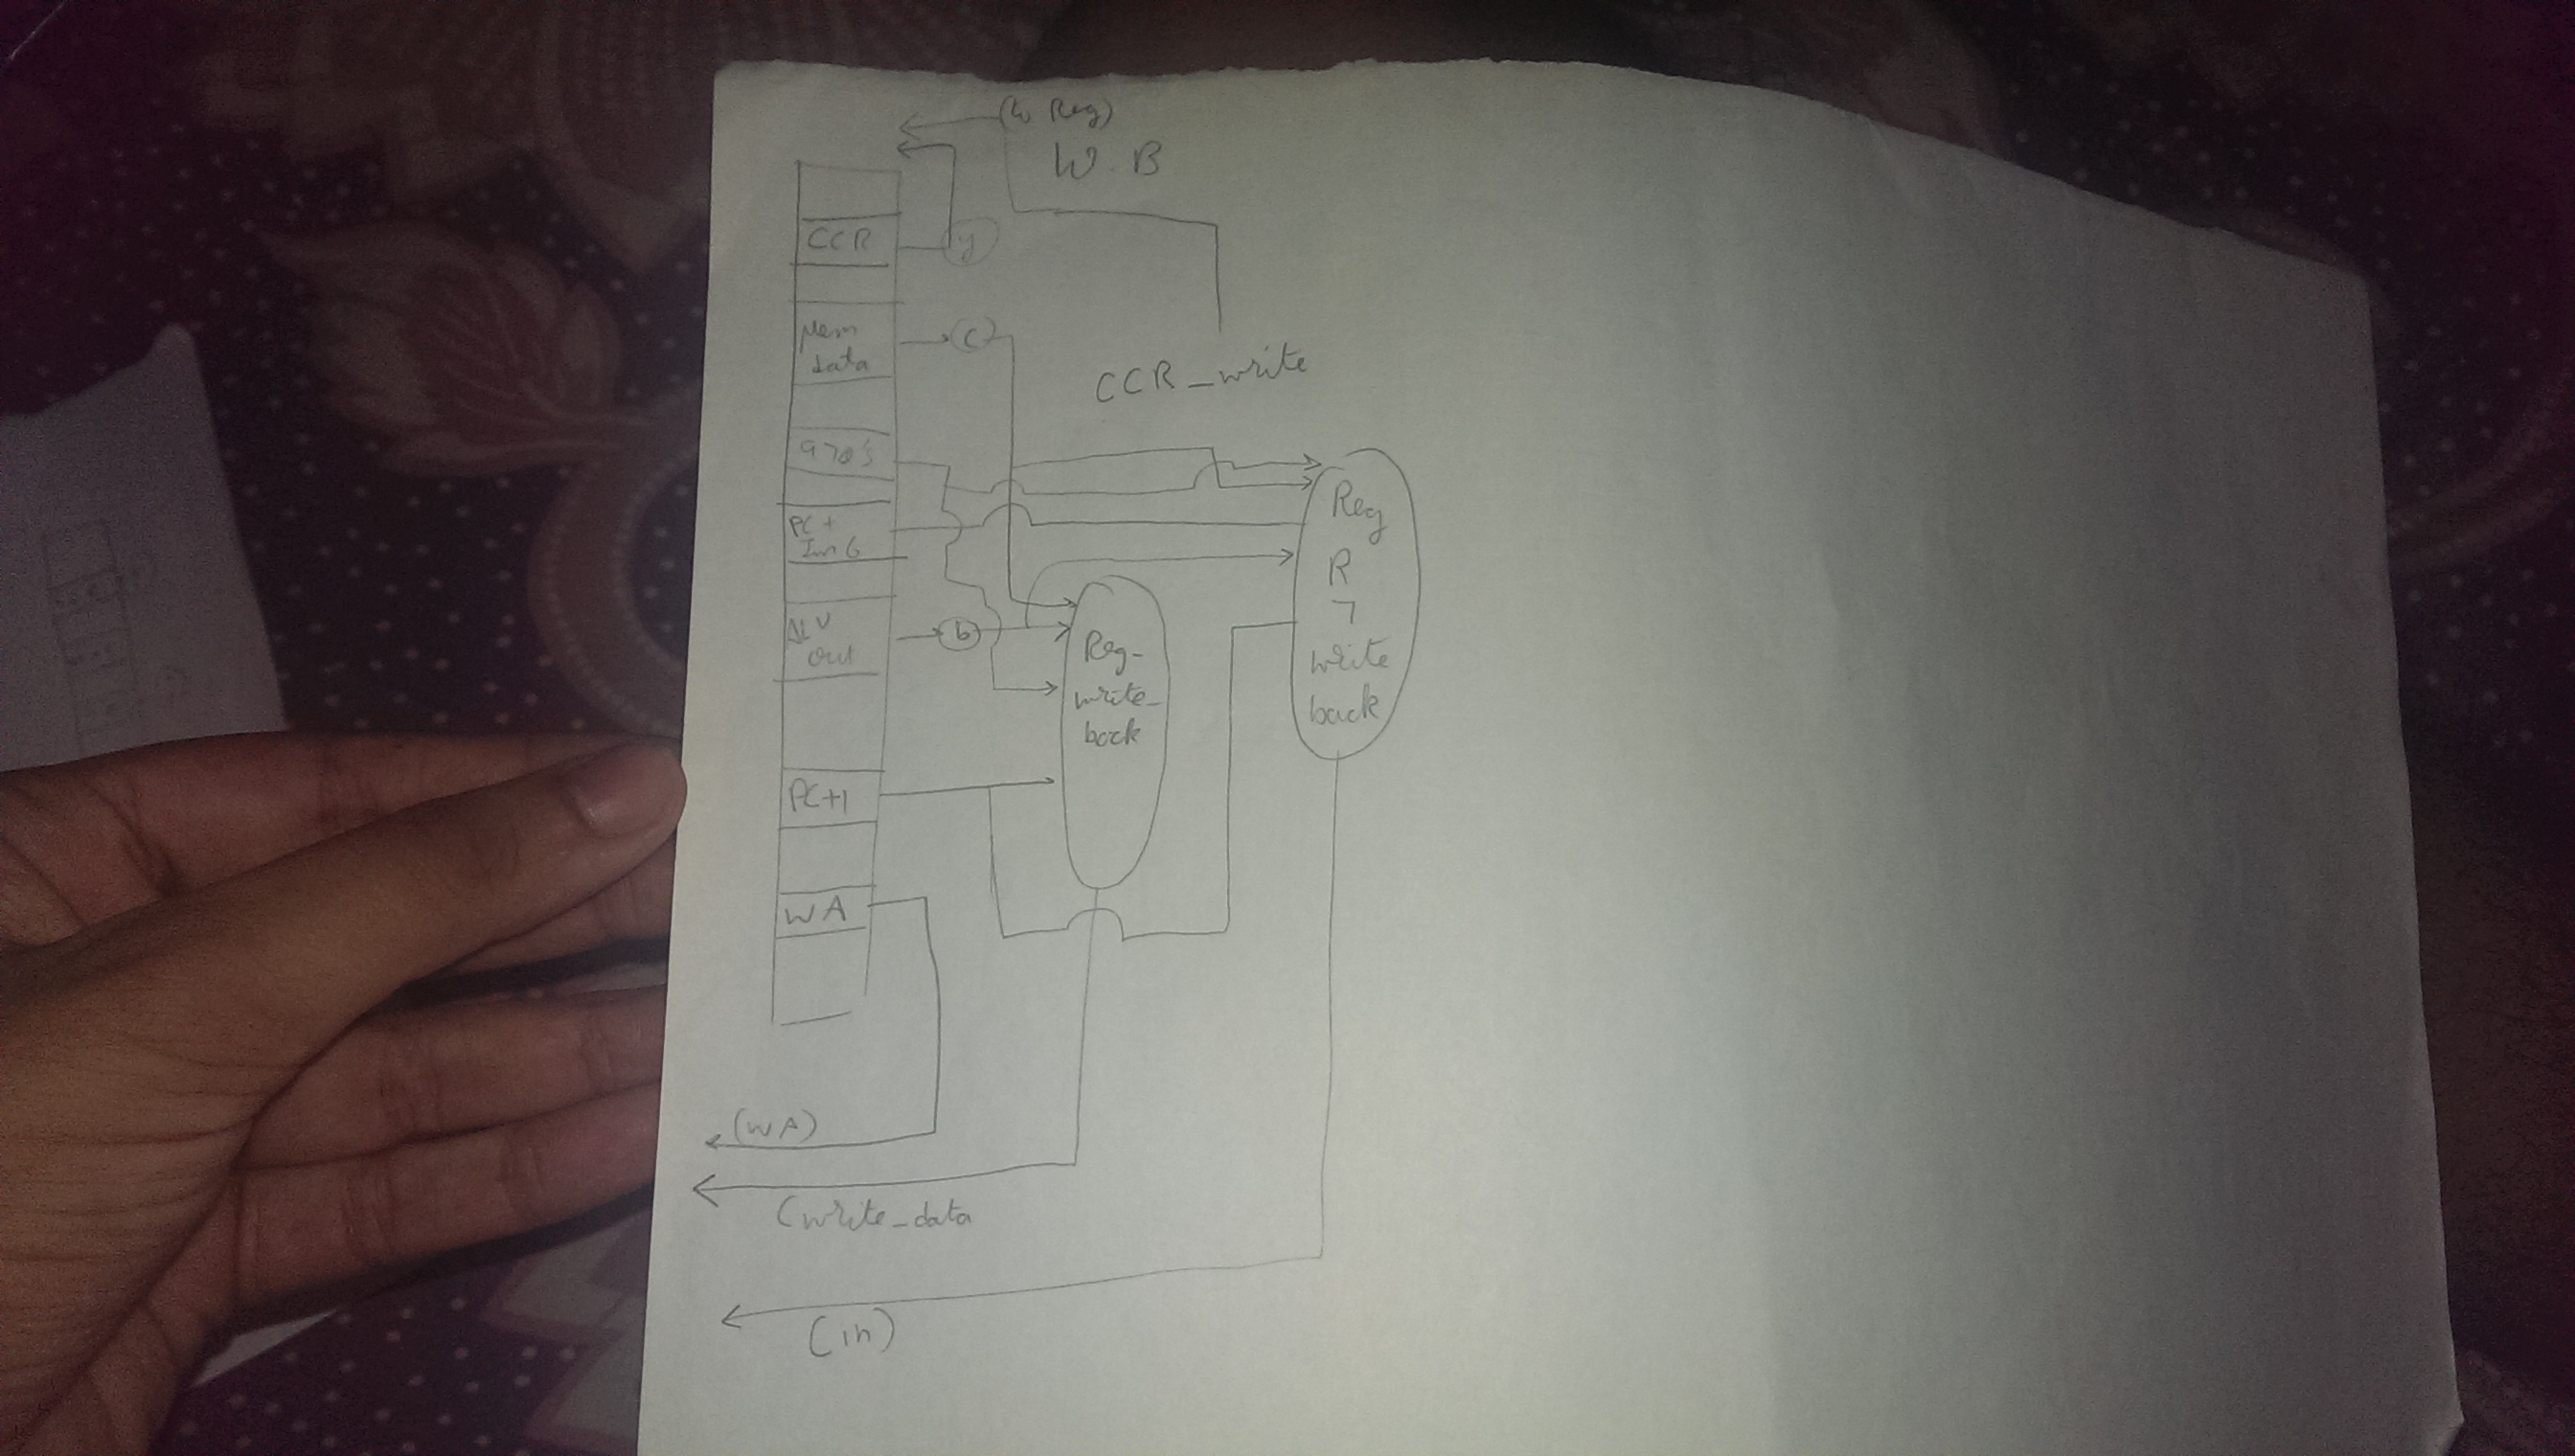 (to Reg)
W.B
CCR
y
Mem
data
c
CCR_write
970's
PC+
Im6
ALU
out
b
Reg-
write-
back
Reg
R
7
write
back
PC+1
WA
(WA)
(write_data
(in)